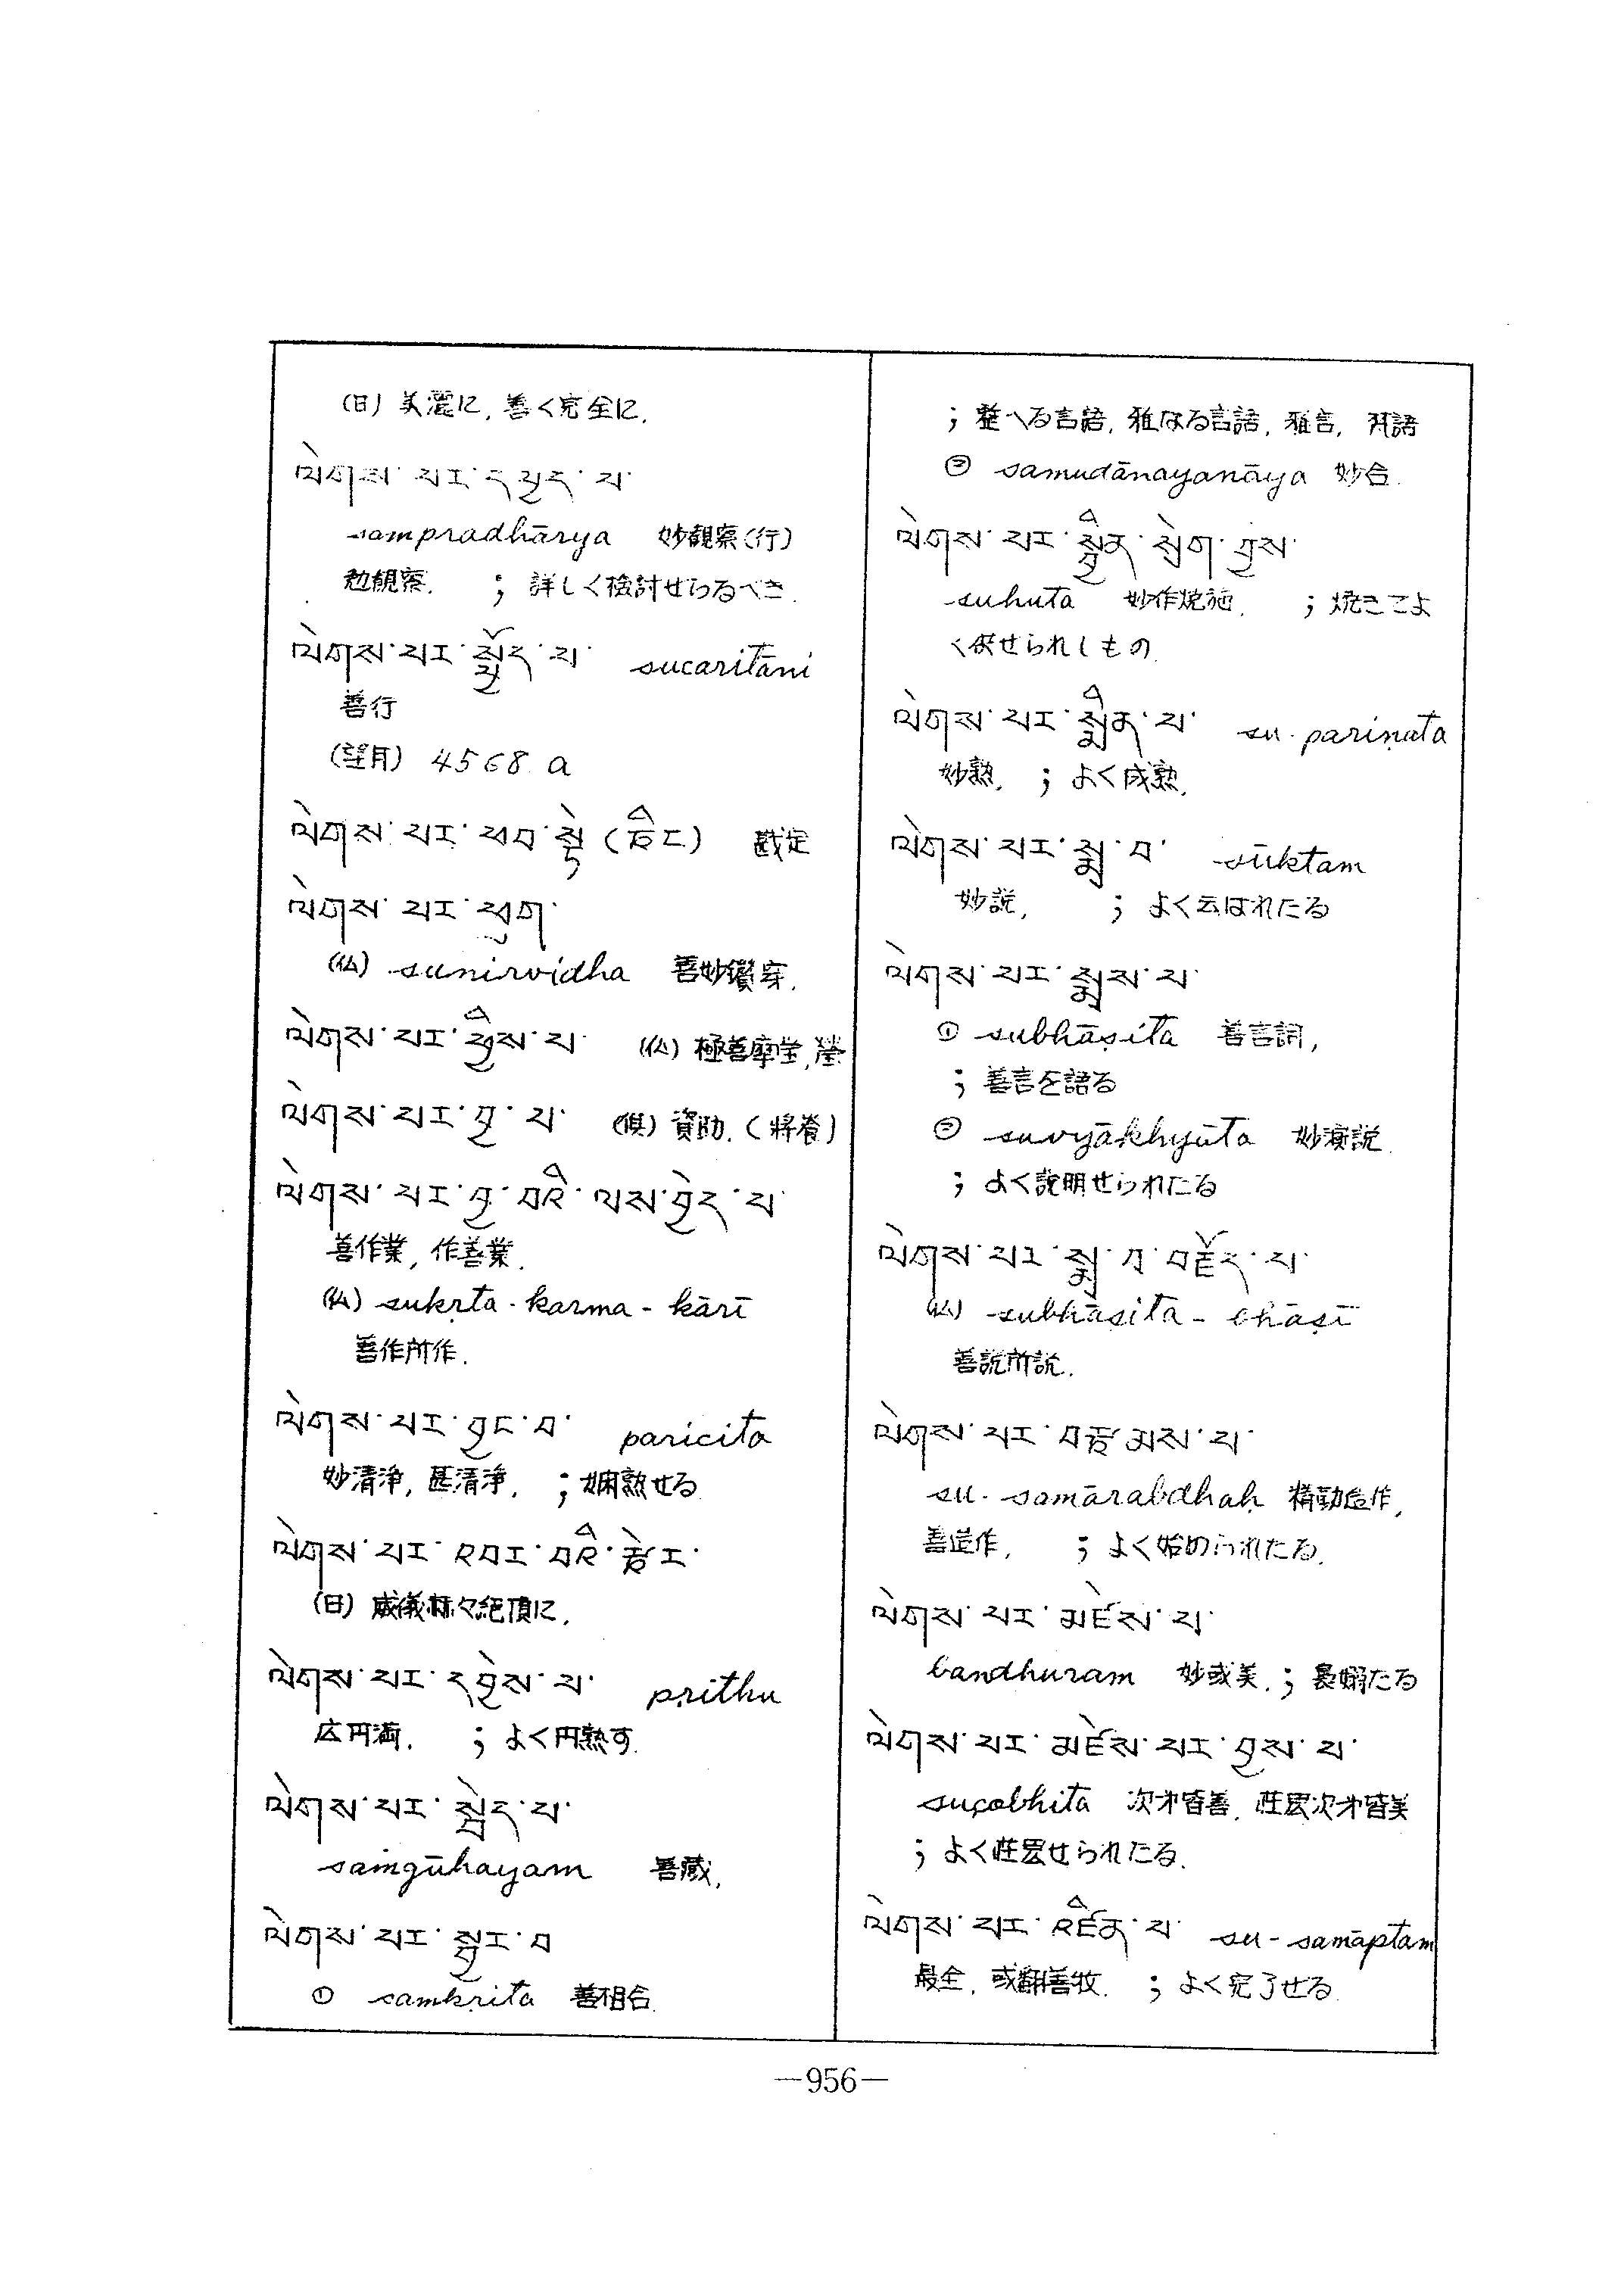 (日) 美麗に, 善く完全に.
ལེགས་ པར་ དཔྱད་ པ་
sampradhārya 妙観察(行)
勉観察. ; 詳しく検討せらるべき.
ལེགས་པར་སྤྱོད་པ་ sucaritāni
善行
(望月) 4568 a
ལེགས་ པར་ ཕབ་ སྟེ (ཅིང)
ལེགས་ པར་ ཕུག་
(仏) sunirvidha 善妙鑽穿.
ལེགས་པར་ཕྱིས་པ་ (仏) 極善摩瑩, 瑩
ལེགས་པར་བྱ་པ་ 資助. (將養)
ལེགས་པར་བྱ་བའི་ལས་བྱེད་པ་
善作業, 作善業.
(仏) sukṛta-karma-kārī
善作所作.
ལེགས་པར་བྱང་བ་ paricita
妙清淨, 甚清淨. ; 嫻熟せる
ལེགས་པར་འབར་བའི་ཚེར་
(日) 威儀 絶頂に.
ལེགས་པར་དབྱེས་པ་ pṛithu
広円満. ; よく円熟す.
ལེགས་པར་སྦེད་པ་
saṁgūhayam 善蔵.
ལེགས་པར་སྦྱར་བ
① saṃkṛita 善相合.
; 整へる言語, 雅なる言語, 雅言, 梵語
② samudānayanāya 妙合.
ལེགས་པར་སྦྱིན་སྲེག་བྱས་
suhuta 妙作焼施. ; 焼きてよ
く供せられしもの.
ལེགས་པར་སྨིན་པ་ su-pariṇata
妙熟. ; よく成熟.
ལེགས་པར་སྨྲ་བ་ sūktam
妙説. ; よく云はれたる
ལེགས་པར་སྨྲས་པ་
① subhāṣita 善言詞,
; 善言を語る
② suvyākhyāta 妙演説.
; よく説明せられたる
ལེགས་པར་སྨྲ་བ་བརྗོད་པ་
(仏) subhāṣita-bhāṣī
善説所説.
ལེགས་པར་བརྩམས་པ་
su-samārabdhaḥ 精勤造作,
善造作. ; よく始められたる.
ལེགས་པར་མཛེས་པ་
bandhuram 妙或美. ;
ལེགས་པར་མཛེས་པར་བྱས་པ་
suçobhita 次才皆善, 荘厳次才皆美
; よく荘厳せられたる.
ལེགས་པར་རྫོགས་པ་ su-samāptam
最全. ; よく完了せる
—956—